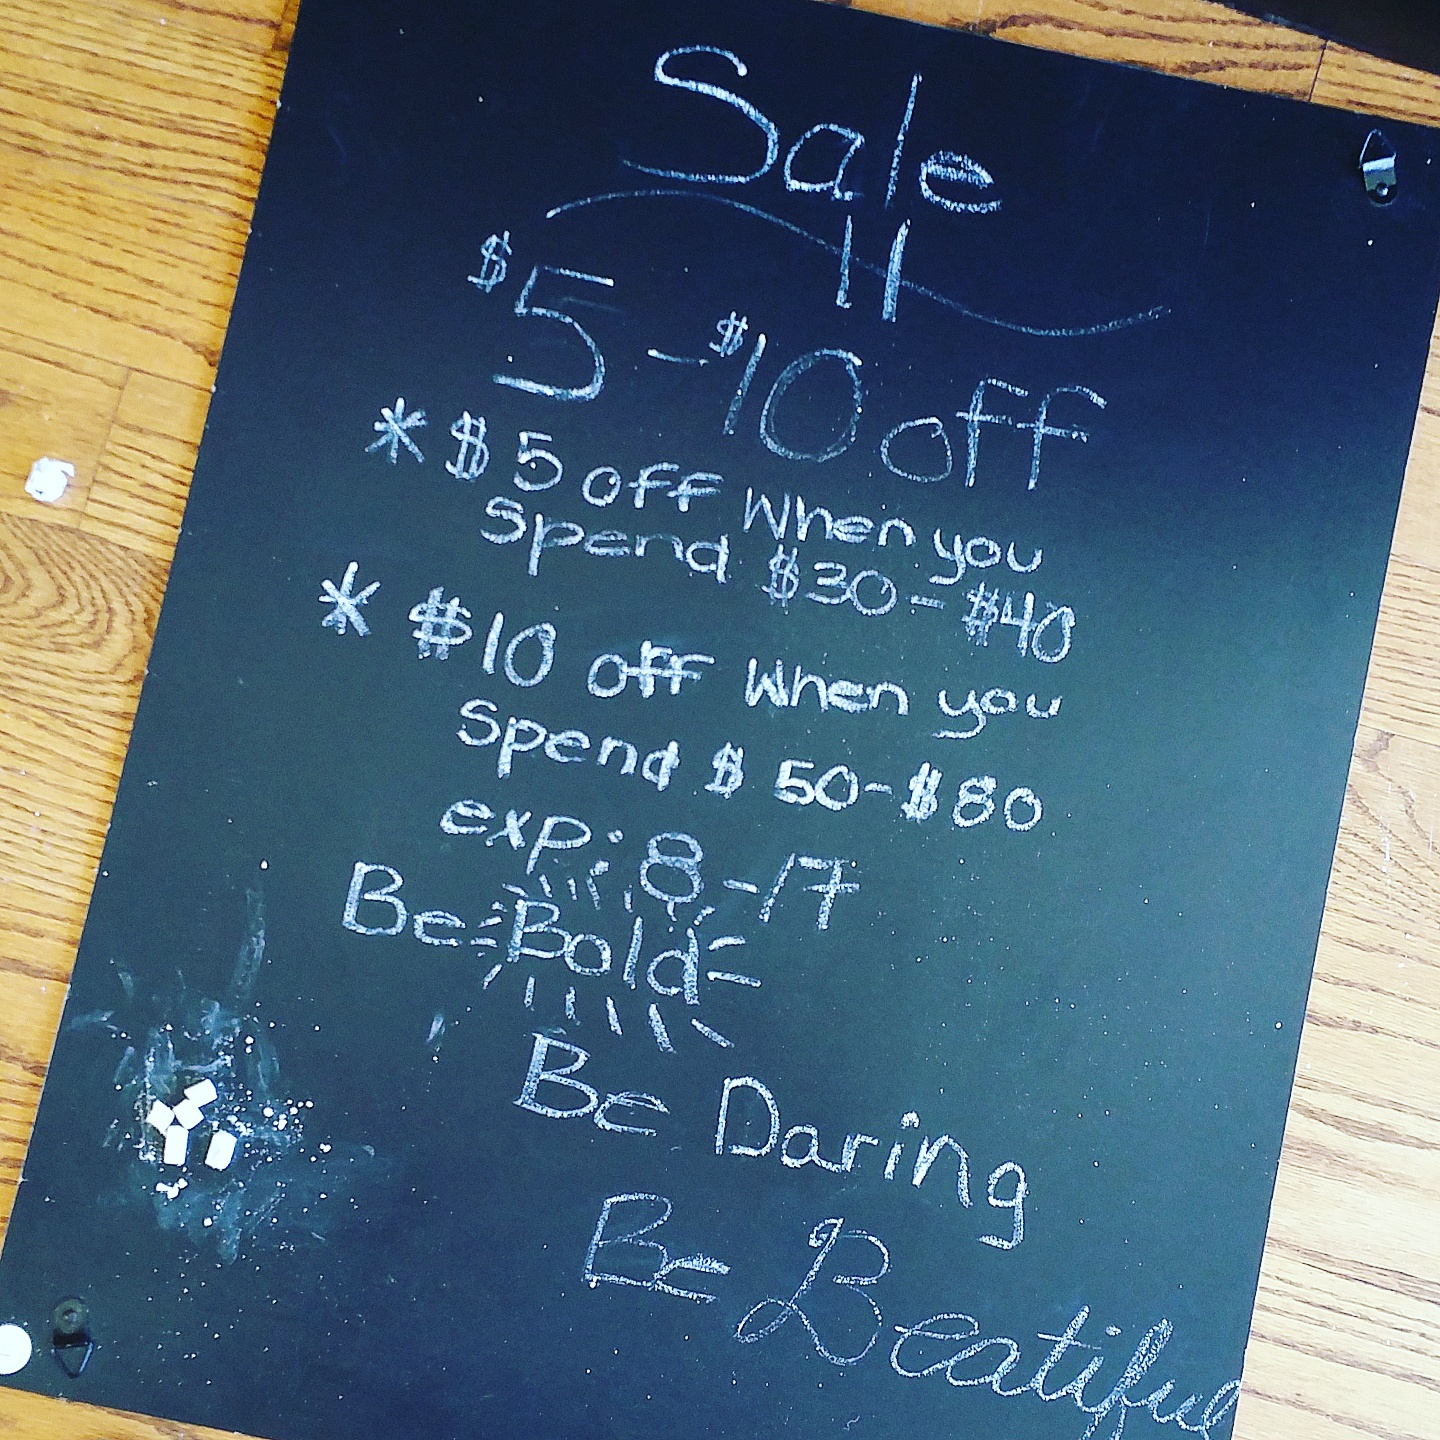 Sale
$5-$10 off
* $5 off When you
Spend $30-$40
* $10 off When you
Spend $50-$80
exp: 8-17
Be Bold
Be Daring
Be Beatiful